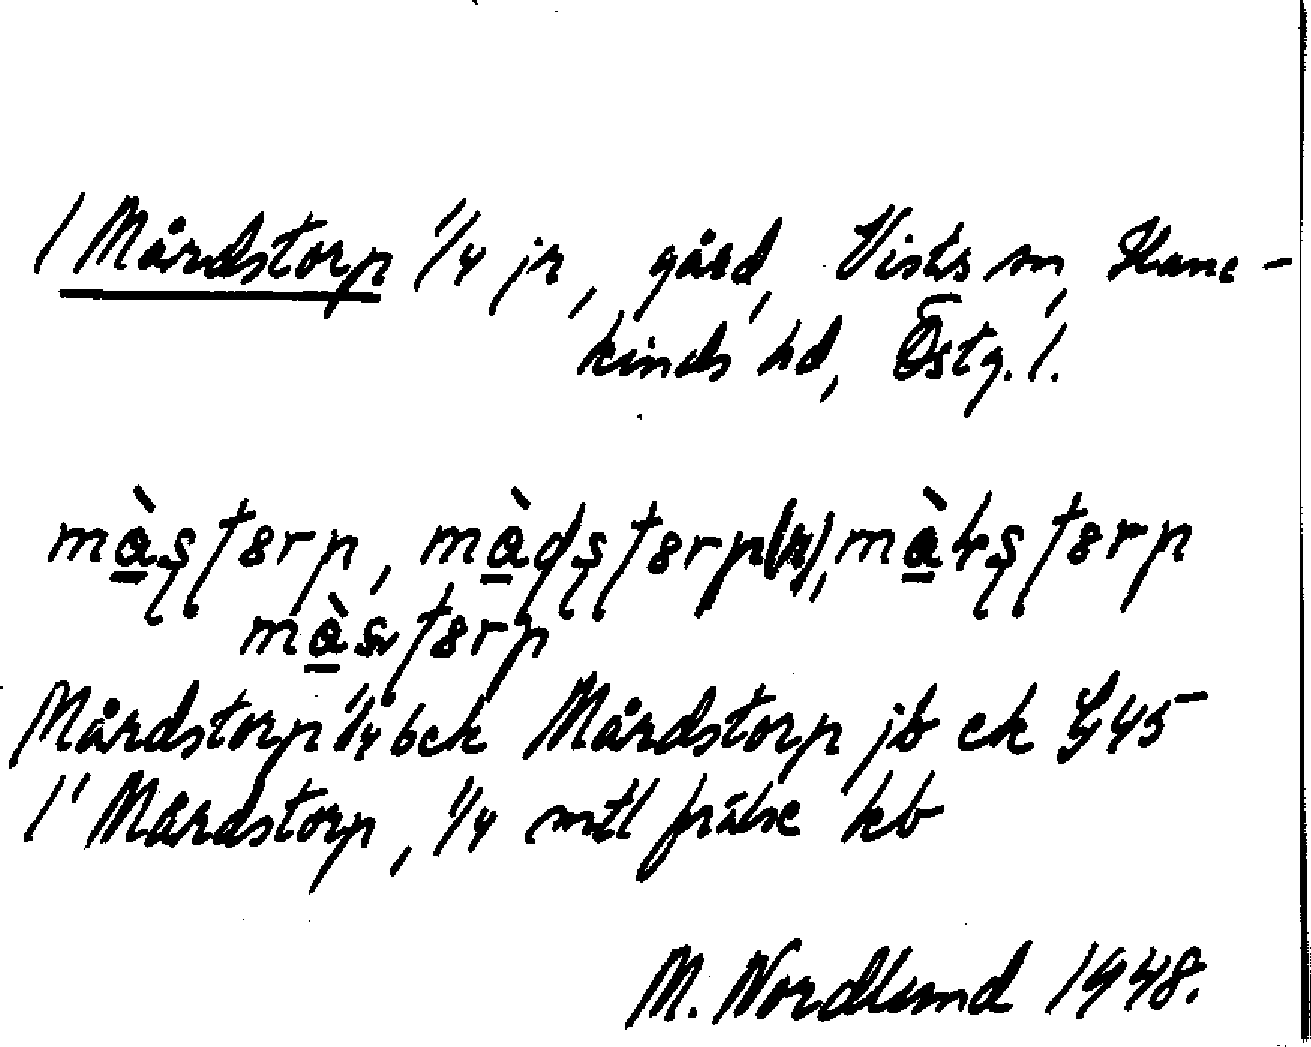 1 Mårdstorp 1/4 jr, gård, Vists sn, Hane-
kinds hd, Östg. l.
måstorp, mådstorp
Mårdstorp 1/4 bek Mårdstorp jb ek 45
1' Mårdstorp, 1/4 mtl frälse kb
M. Nordlund 1948.